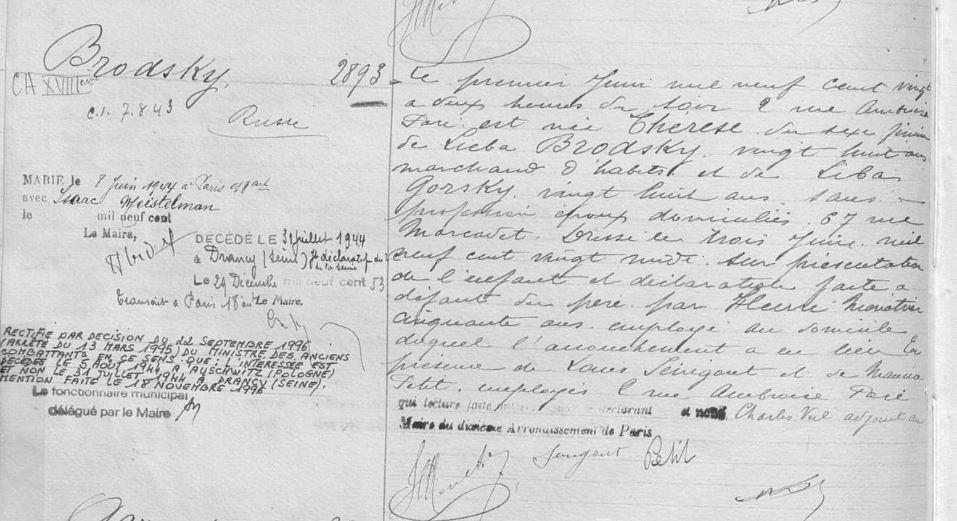 Brodsky.
2893
CA XVIIIeme
C.I. 7.8.43
Russe
MARIE le 8 Juin 1944 à Paris 18eme
avec Isaac Meistelman
le mil neuf cent
Le Maire,
DÉCÉDÉ LE 31 juillet 1944
à Drancy (Seine) Jt déclaratif du
de la Seine
Le 29 Décembre mil neuf cent 53
Transcrit à Paris 18e Le Maire,
RECTIFIÉ PAR DECISION DU 22 SEPTEMBRE 1996
(ARRÊTÉ DU 13 MARS 1996) DU MINISTRE DES ANCIENS
COMBATTANTS EN CE SENS QUE: L'INTERESSÉE EST
DÉCÉDÉE LE 5 AOUT 1944 A AUSCHWITZ (POLOGNE)
ET NON LE 31 JUILLET 1944 A DRANCY (SEINE).
MENTION FAITE LE 18 NOVEMBRE 1996
Le fonctionnaire municipal
délégué par le Maire
Le premier Juin mil neuf cent vingt
à deux heures du soir 2 rue Ambroise
Paré est née Thérèse du sexe féminin
de Lieba BRODSKY. vingt huit ans
marchand d'habits et de Liba
Gorsky. vingt huit ans. sans
profession époux domiciliés 67 rue
Marcadet. Dressé le trois Juin. mil
neuf cent vingt midi. sur présentation
de l'enfant et déclaration faite à
défaut du père par
cinquante ans employé au domicile
duquel l'accouchement a eu lieu En
présence de Louis Seingont et de
Petit. employés 2 rue Ambroise Paré
qui lecture faite déclarant et nous Charles adjoint au
Maire du dixième Arrondissement de Paris
Seingont Petit